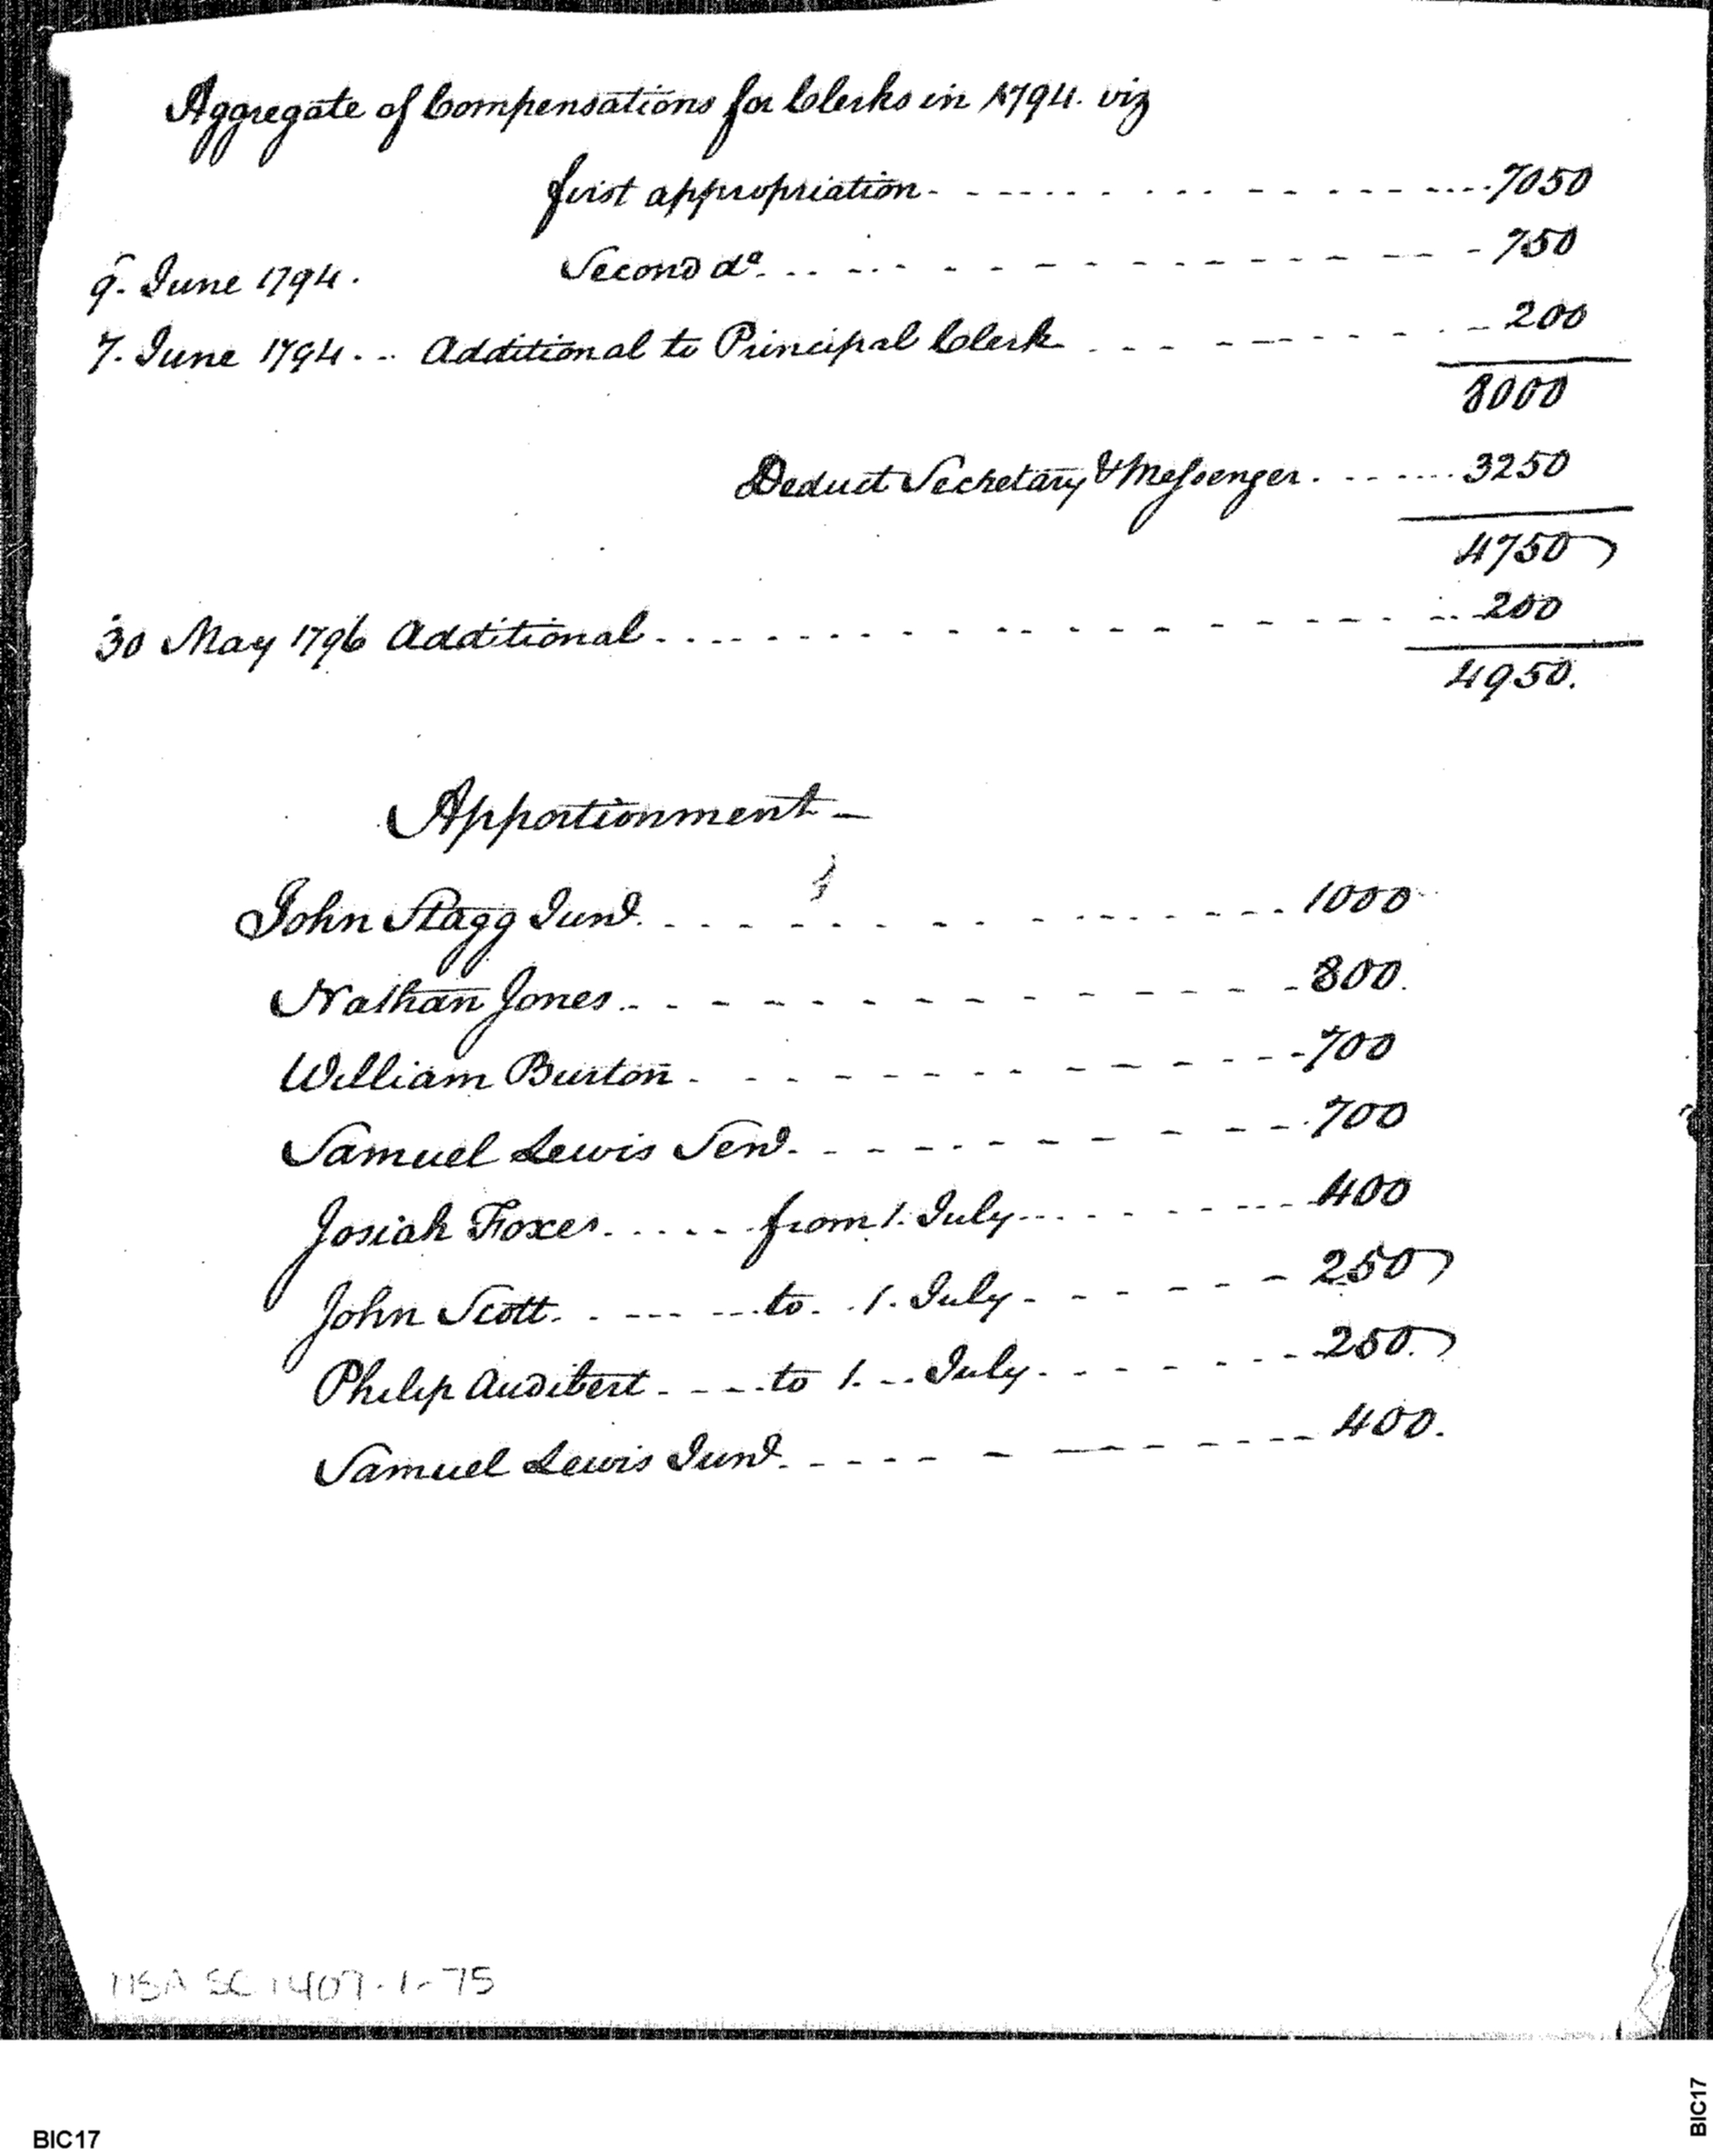 Aggregate of Compensations for Clerks in 1794. viz
first appropriation 7050
9. June 1794. Second do. 750
7. June 1794. Additional to Principal Clerk 200
8000
Deduct Secretary & Messenger. 3250
4750
30 May 1796 Additional 200
4950.
Apportionment –
John Stagg Junr. 1000
Nathan Jones 800.
William Burton 700
Samuel Lewis Senr. 700
Josiah Foxes from 1. July 400
John Scott to 1. July 250
Philip Audibert to 1. July 250.
Samuel Lewis Junr. 400.
MSA SC 1407-1-75
BIC17
BIC17